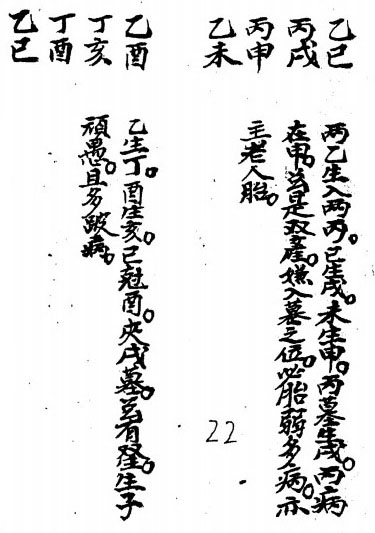 乙巳
丙戌
丙申
乙未
两乙生入两丙。巳生戌。未生申。丙墓生戌。丙病
在申。是双產。嫌入墓之位。必胎弱多病。亦
主老人胎。
22
乙酉
丁亥
丁酉
乙巳
乙生丁。酉生亥。巳尅酉。夹戌墓。有。生子
頑愚。且多跛病。